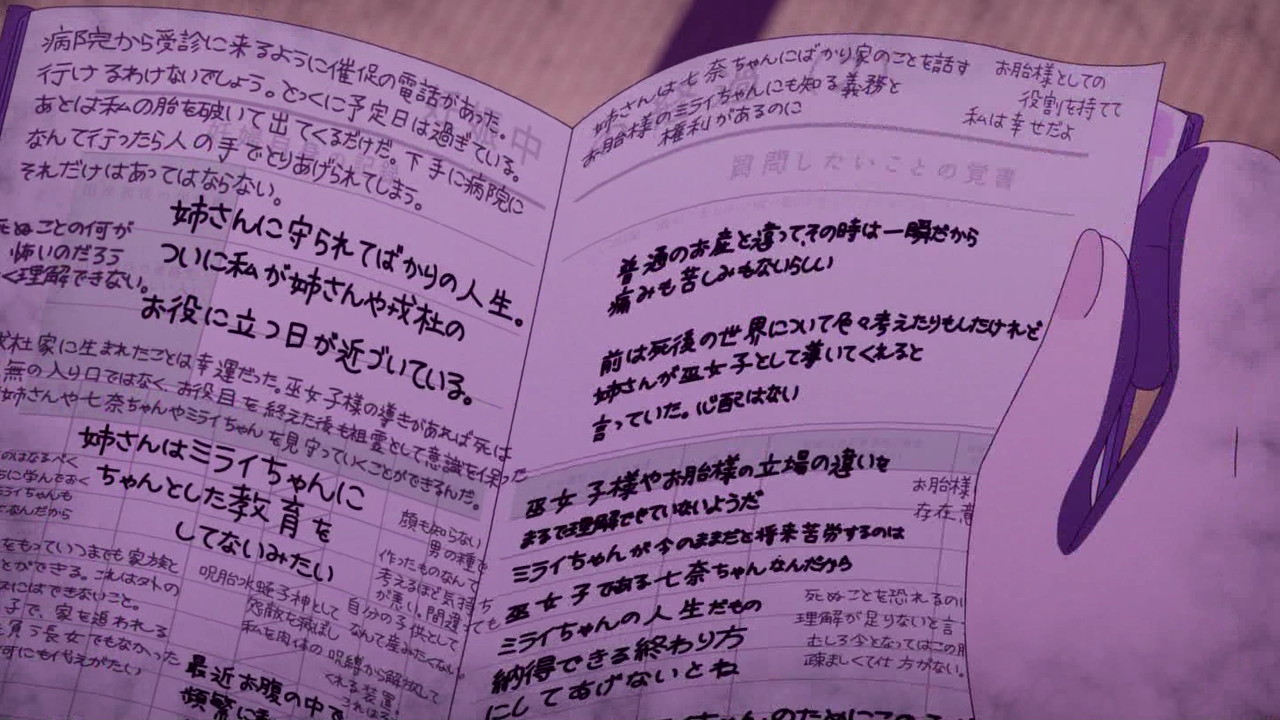 病院から受診に来るように催促の電話があった。
行けるわけないでしょう。とっくに予定日は過ぎている。
あとは私の胎を破いて出てくるだけだ。下手に病院に
なんて行ったら人の手でとりあげられてしまう。
それだけはあってはならない。
死ぬことの何が
怖いのだろう
く理解できない。
姉さんに守られてばかりの人生。
ついに私が姉さんや戎杜の
お役に立つ日が近づいている。
戎杜家に生まれたことは幸運だった。巫女子様の導きがあれば死は
無の入り口ではなく、お役目を終えた後も祖霊として意識を保った
姉さんや七奈ちゃんやミライちゃんを見守っていくことができるんだ。
姉さんはミライちゃんに
ちゃんとした教育を
してないみたい
のはなるべく
ちに学んでおく
ミライちゃんも
なんだから
をもっていつまでも家族と
とができる。これはタトの
にはできないこと。
子で、家を追われる
負う長女でもなかった
何にも代えがたい
呪胎水蛭子神として
怨敵を滅ぼし
私を肉体の呪縛から解放して
くれる装置。
顔も知らない
男の種で
作ったものなんて
考えるほど気持ち
が悪い。間違っても
自分の子供として
なんて産みたくない
最近お腹の中で
頻繁に
姉さんは七奈ちゃんにばかり家のことを話す
お胎様のミライちゃんにも知る義務と
権利があるのに
お胎様としての
役割を持てて
私は幸せだよ
質問したいことの覚書
普通のお産と違ってその時は一瞬だから
痛みも苦しみもないらしい
前は死後の世界について色々考えたりもしたけれど
姉さんが巫女子として導いてくれると
言っていた。心配はない
巫女子様やお胎様の立場の違いを
まるで理解できていないようだ
ミライちゃんが今のままだと将来苦労するのは
巫女子である七奈ちゃんなんだから
ミライちゃんの人生だもの
納得できる終わり方
にしてあげないとね
お胎様
存在意
死ぬことを恐れるのは
理解が足りないと言
むしろ今となってはこの肌
疎ましくて仕方がない。